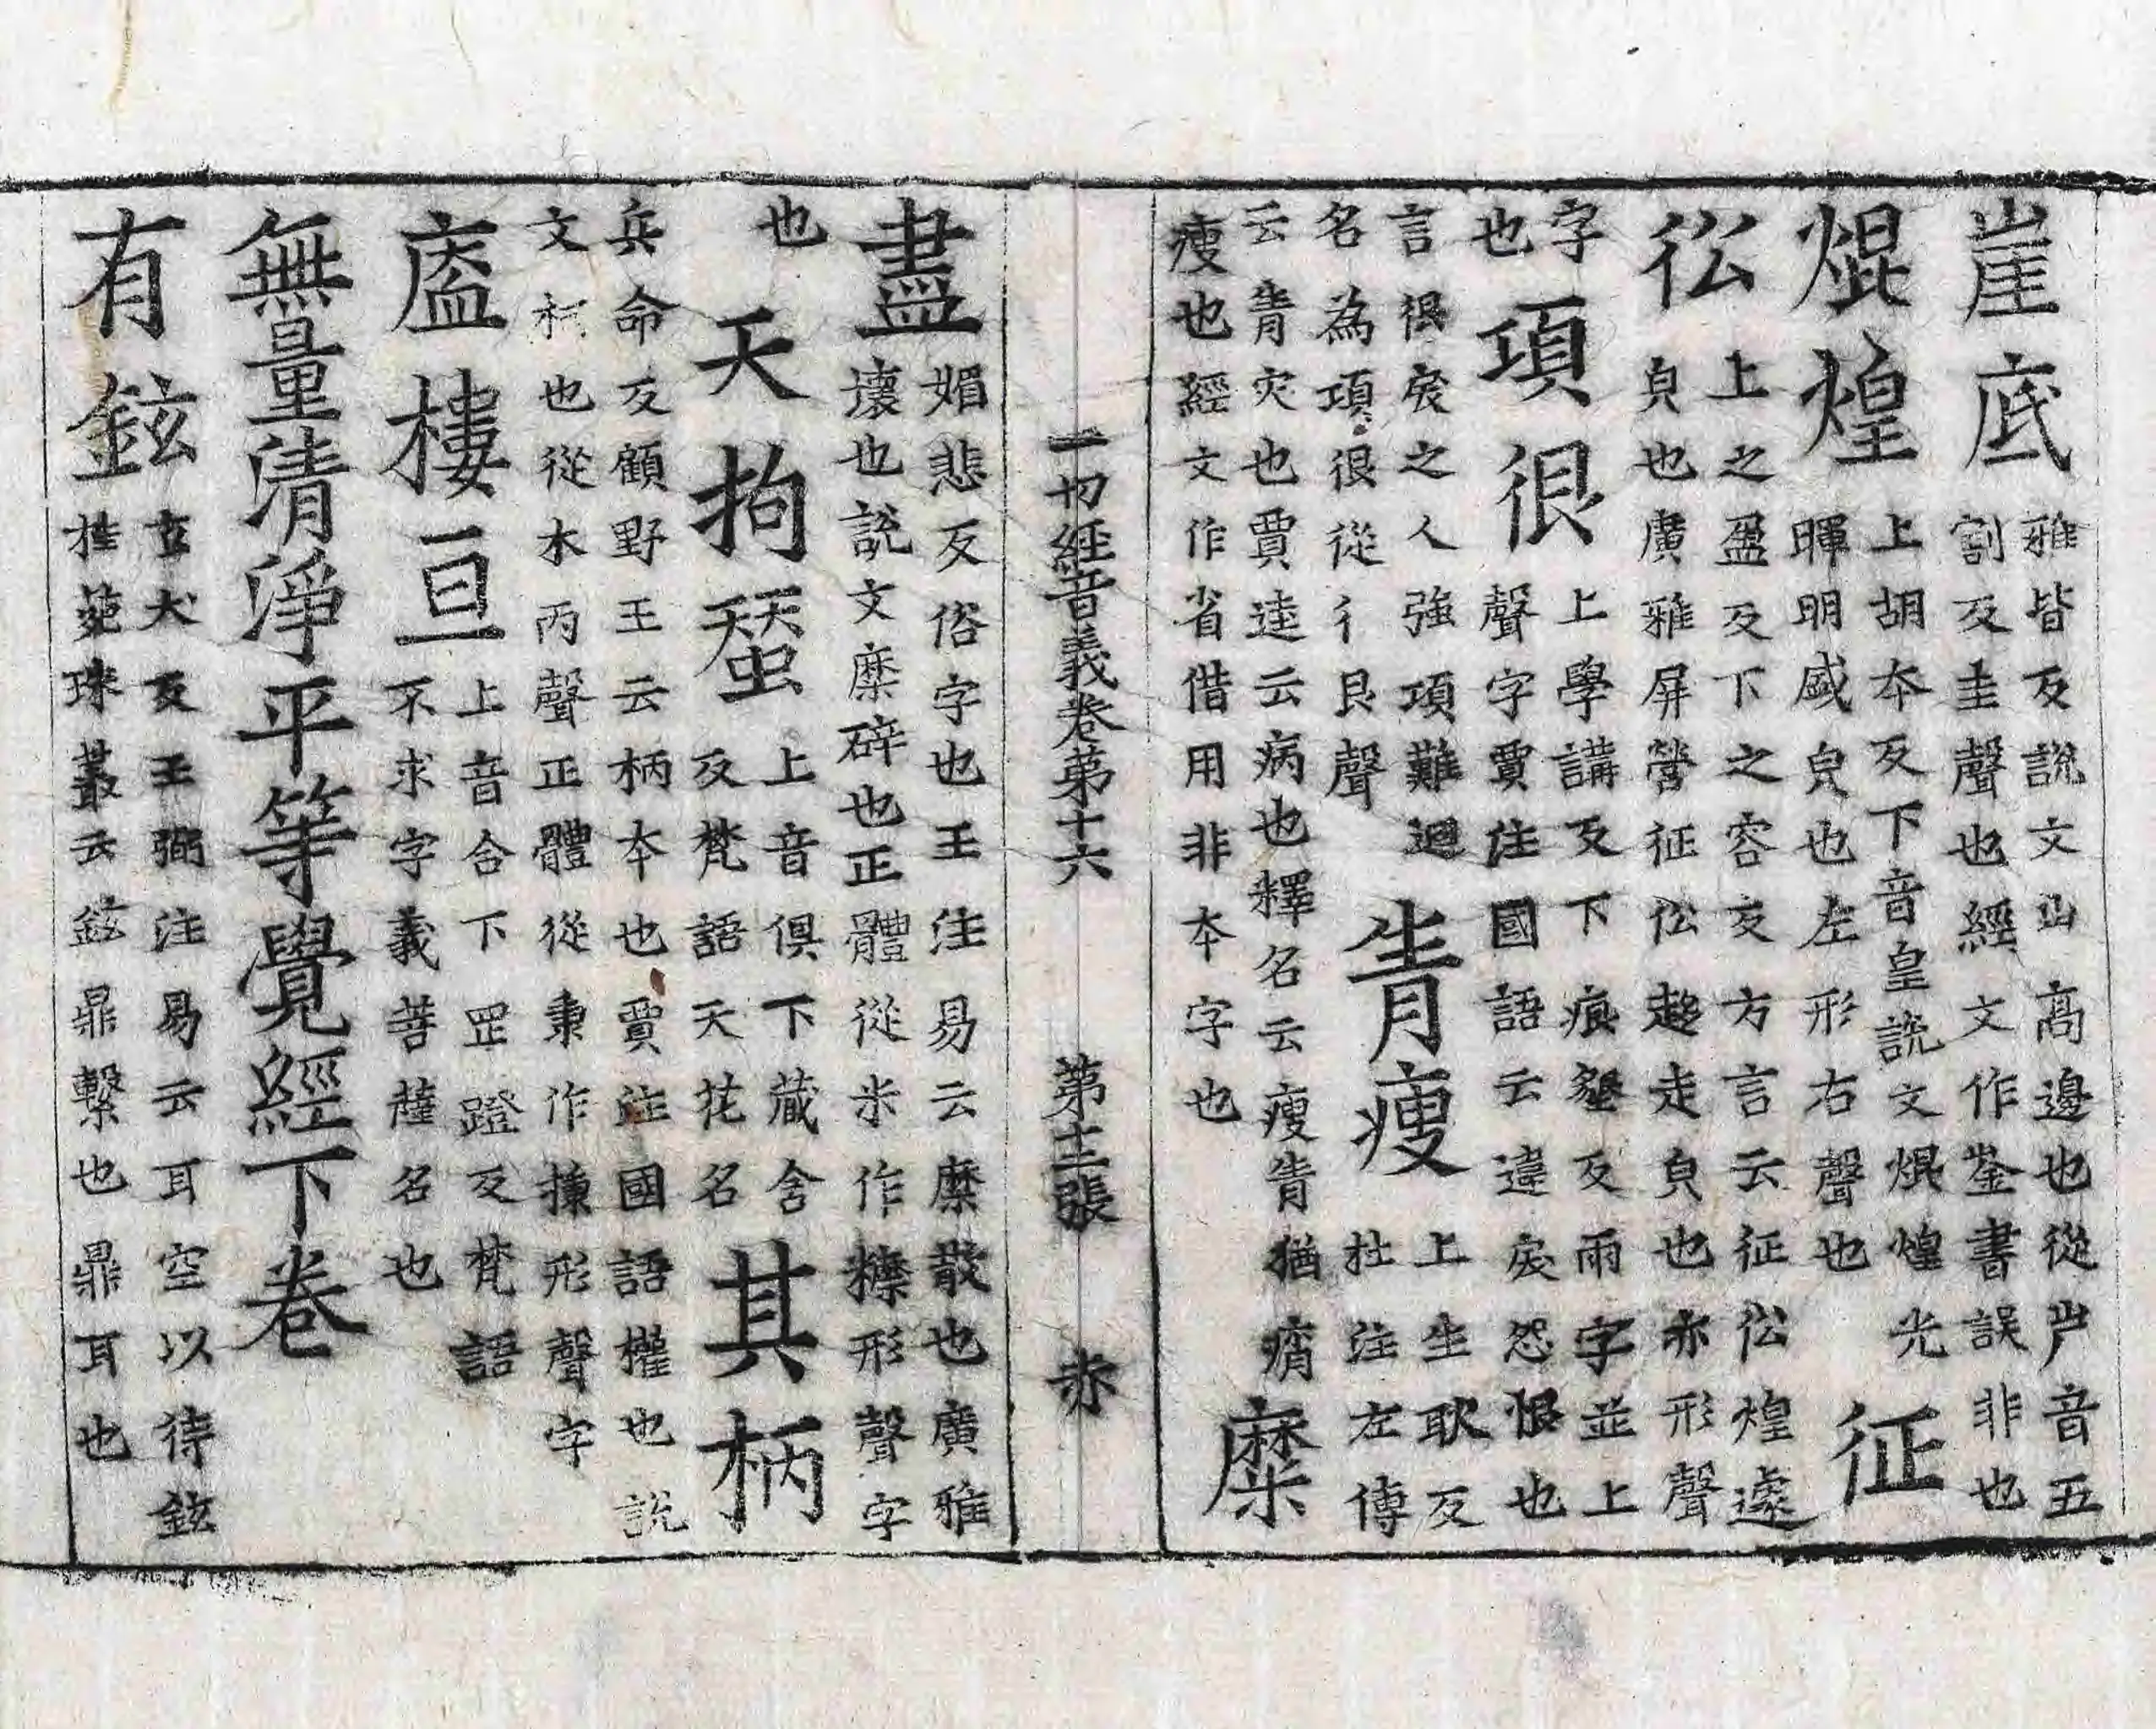 崖底雅皆反說文山高邊也從屵音五
割反圭聲也經文作崟書誤非也
焜煌上胡本反下音皇說文焜煌光
暉明盛皃也左形右聲也
征
伀上之盈反下之容反方言云征伀煌遽
皃也廣雅屏營征伀趍走皃也亦形聲
字
也
項很上學講反下痕墾反兩字並上
聲字賈注國語云違戾怨恨也
言很戾之人強項難迴
名為項很從彳艮聲
眚瘦上生耿反
杜注左傳
云眚灾也賈逵云病也釋名云瘦眚猶痟
瘦也經文作省借用非本字也
糜
一切經音義卷第十六 第十二張 赤
盡媚悲反俗字也王注易云糜散也廣雅
壞也說文糜碎也正體從米作䊳形聲字
也
天拘蝅上音俱下蔵含
反梵語天花名
其柄
兵命反顧野王云柄本也賈注國語權也說
文柯也從木丙聲正體從秉作棅形聲字
廅樓亘上音合下㞷蹬反梵語
不求字義菩薩名也
無量清淨平等覺經下卷
有鉉玄犬反王弼注易云耳空以待鉉
桂菀珠叢云鉉鼎繫也鼎耳也